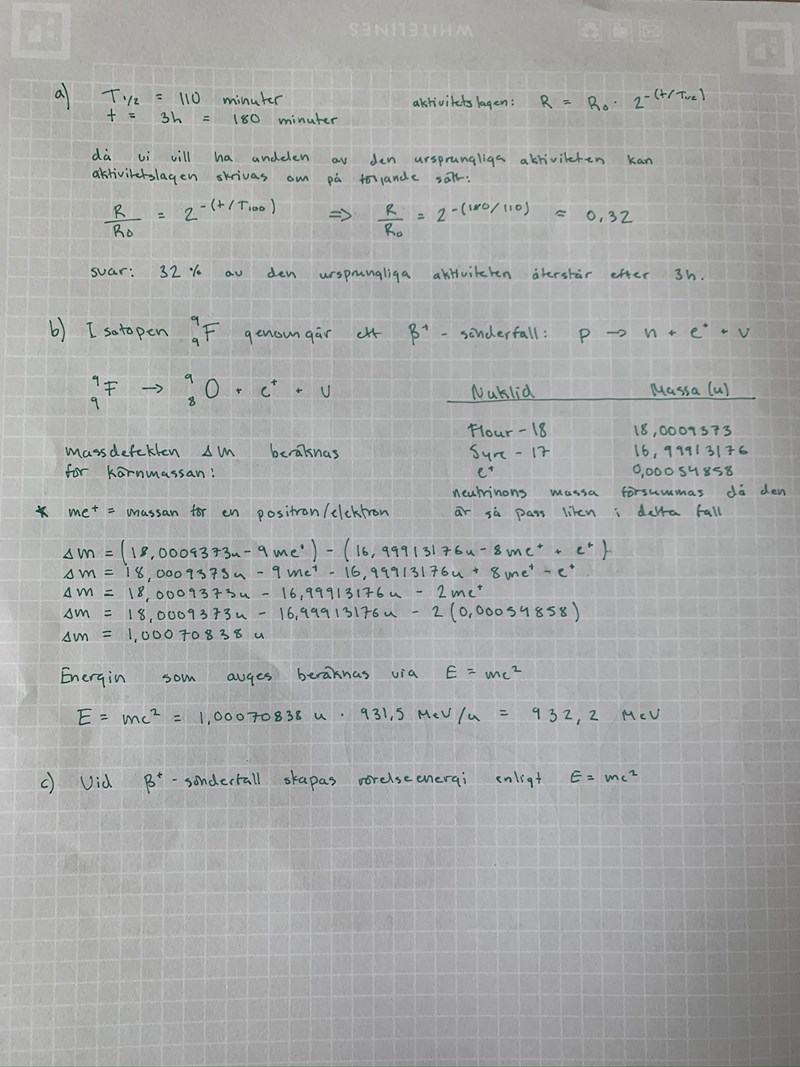 WHITELINES
a) T1/2 = 110 minuter
t = 3h = 180 minuter
aktivitetslagen: R = R0 · 2^-(t/T1/2)
då vi vill ha andelen av den ursprungliga aktiviteten kan
aktivitetslagen skrivas om på följande sätt:
R/R0 = 2^-(t/T100) => R/R0 = 2^-(180/110) ≈ 0,32
svar: 32 % av den ursprungliga aktiviteten återstår efter 3h.
b) Isotopen ⁹₉F genomgår ett β⁺-sönderfall: p → n + e⁺ + v
⁹₉F → ⁹₈O + e⁺ + v
Nuklid Massa (u)
Flour-18 18,0009373
Syre-17 16,99913176
e⁺ 0,00054858
neutrinons massa försummas då den
är så pass liten i detta fall
massdefekten Δm beräknas
för kärnmassan:
* me⁺ = massan för en positron/elektron
Δm = (18,0009373u - 9me⁺) - (16,99913176u - 8me⁺ + e⁺)
Δm = 18,0009373u - 9me⁺ - 16,99913176u + 8me⁺ - e⁺
Δm = 18,0009373u - 16,99913176u - 2me⁺
Δm = 18,0009373u - 16,99913176u - 2(0,00054858)
Δm = 1,00070838 u
Energin som avges beräknas via E = mc²
E = mc² = 1,00070838 u · 931,5 MeV/u = 932,2 MeV
c) Vid β⁺-sönderfall skapas rörelseenergi enligt E = mc²